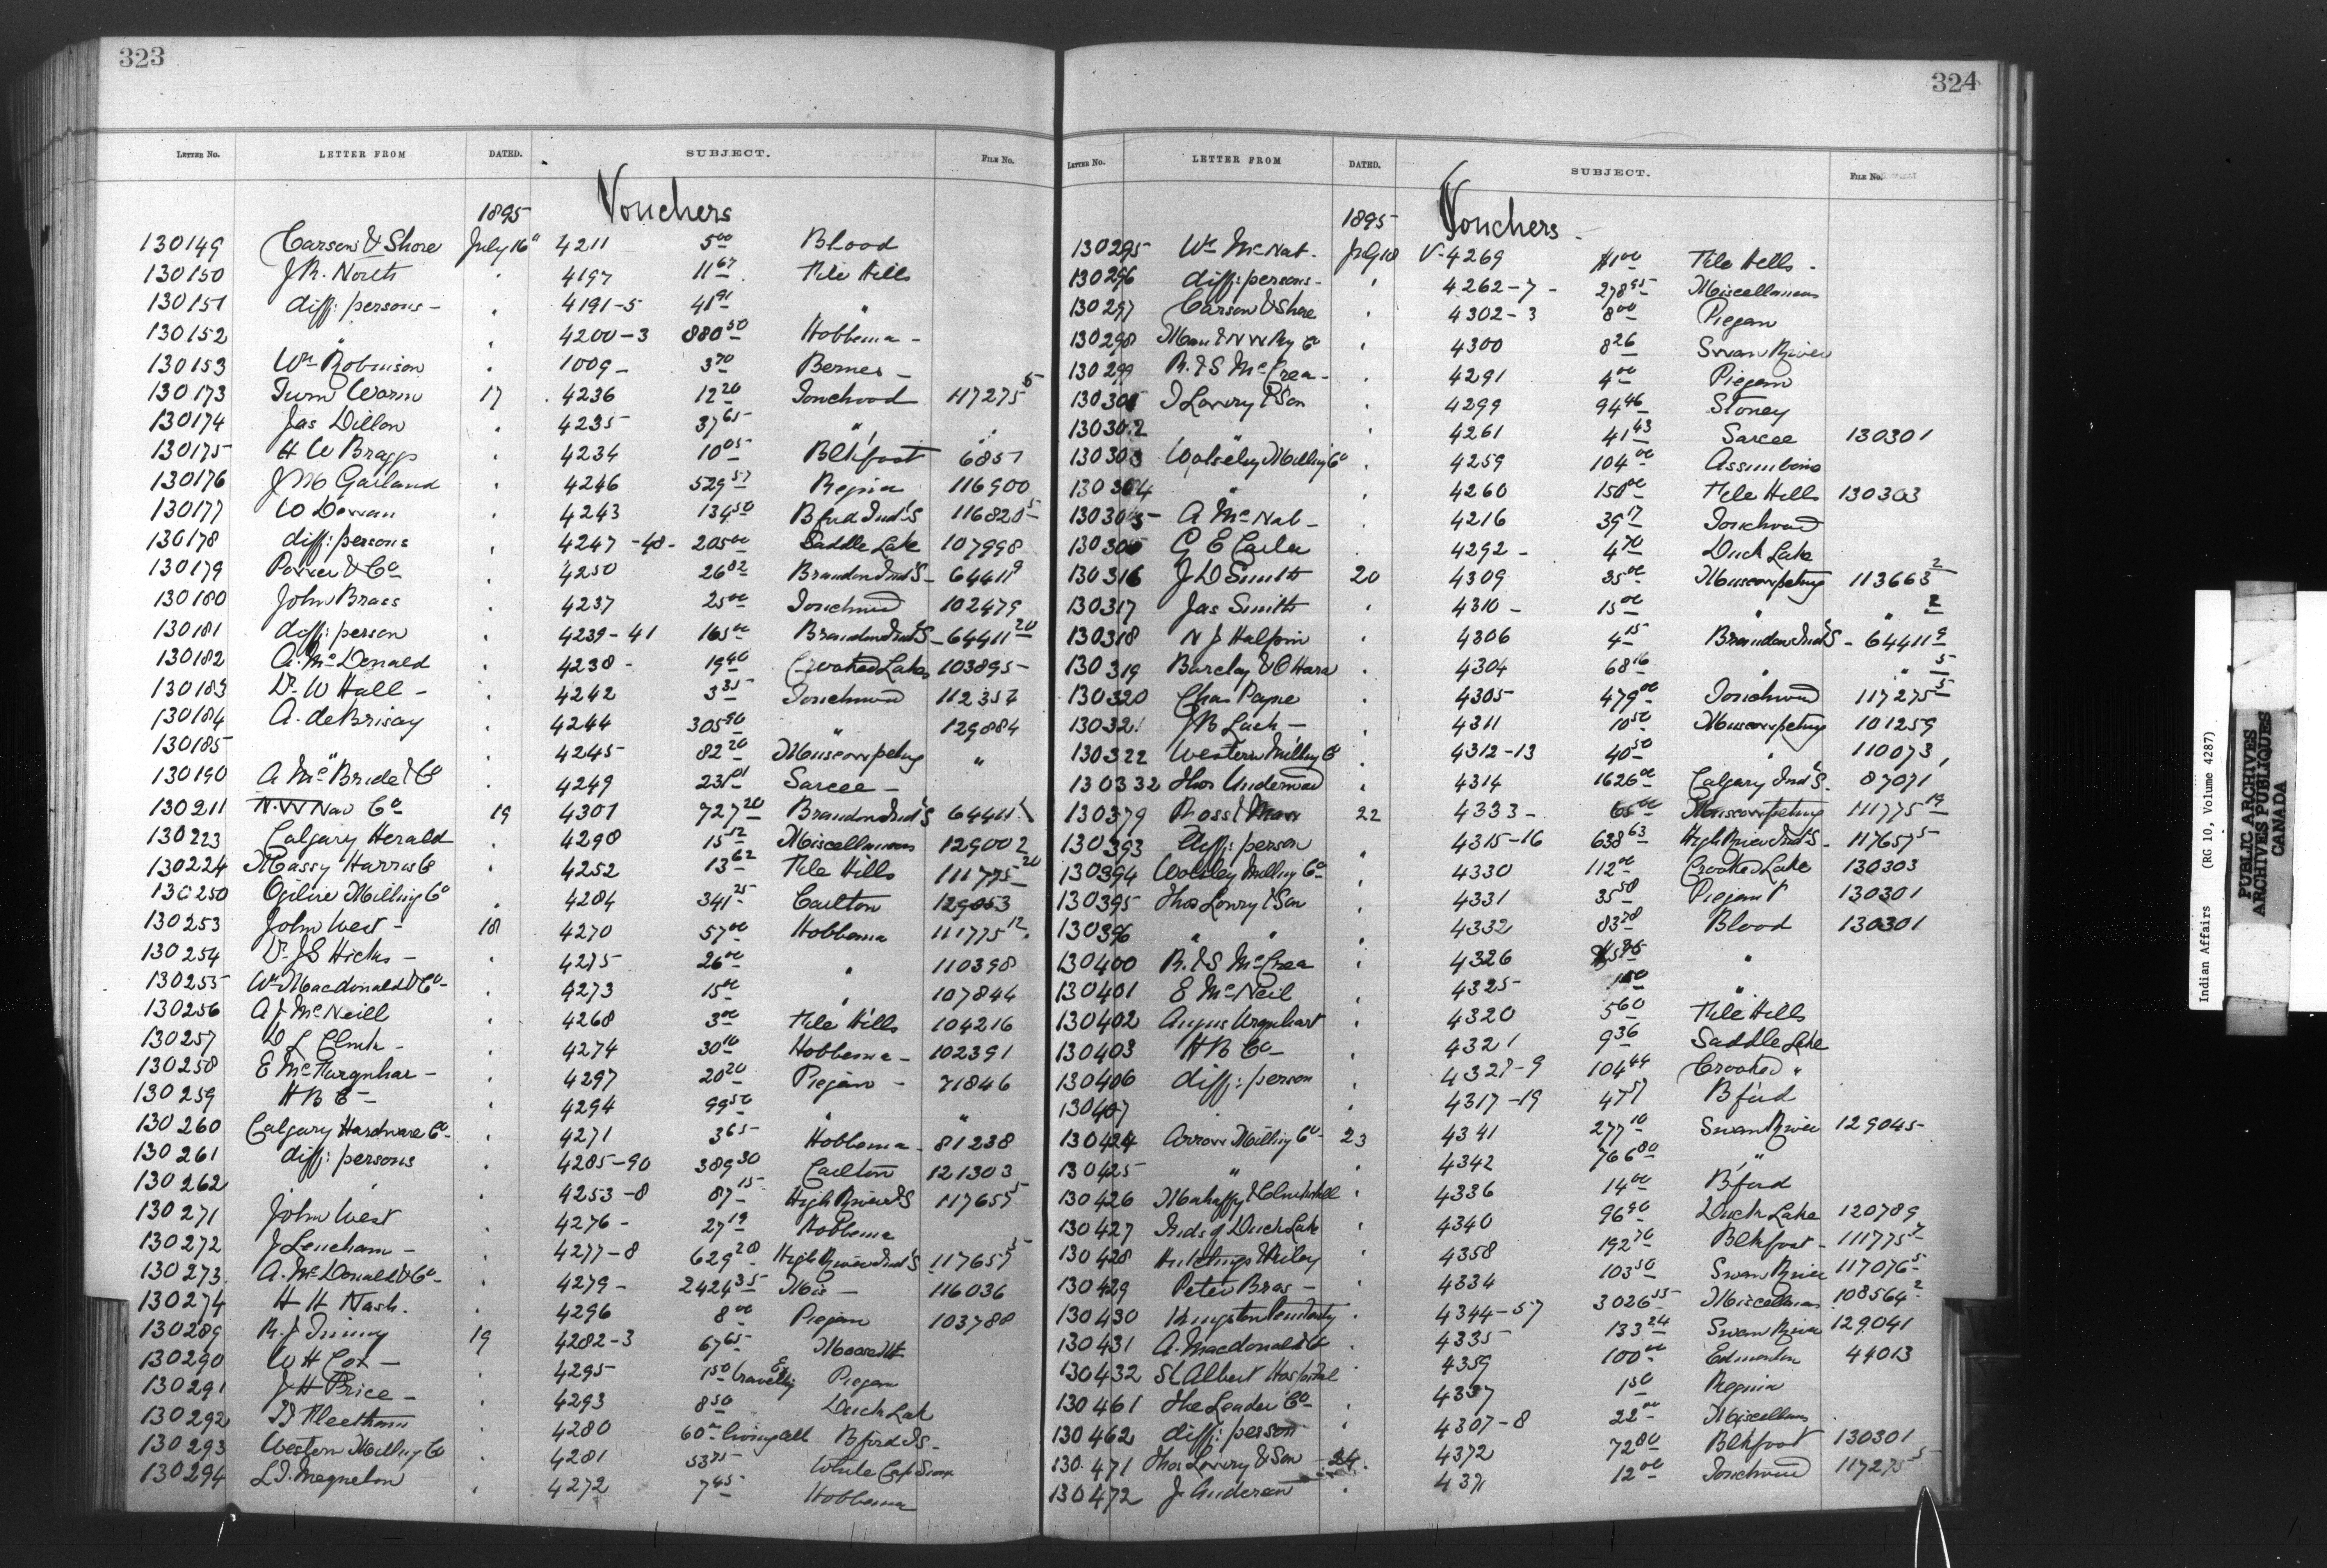 323
LETTER NO. LETTER FROM DATED. SUBJECT. FILE NO.
1895 Vouchers
130149 Carson & Shore July 16 4211 5 00 Blood
130150 J.R. North " 4197 11 67 File Hills
130151 diff: persons - " 4191-5 41 91 "
130152 " " 4200-3 880 50 Hobbema -
130153 Wm Robinson " 1009 - 3 70 Bernes -
130173 Turn Worm 17 4236 12 20 Touchwood 117275 5
130174 Jas Dillon " 4235 37 65 " "
130175 H W Braggs " 4234 10 05 Blkfoot 6857
130176 J M Garland " 4246 529 57 Regina 116900
130177 W Dewan " 4243 134 50 Bford Ind S 116820 5
130178 diff: persons " 4247-48 - 205 00 Saddle Lake 107998
130179 Power & Co " 4250 26 82 Brandon Ind S - 64411 9
130180 John Brass " 4237 25 00 Touchwood 102479
130181 diff: person " 4239-41 165 00 Brandon Ind S - 64411 20
130182 A. McDonald " 4238 - 19 40 Crooked Lakes 103895 -
130183 Dr W Hall - " 4242 3 35 Touchwood 112354
130184 A. deBrisay " 4244 305 90 " 129884
130185 " " 4245 82 20 Muscowpetung "
130190 A McBride & Co " 4249 231 01 Sarcee -
130211 N.W Nav Co 19 4301 727 20 Brandon Ind S 64411
130223 Calgary Herald " 4298 15 12 Miscellaneous 129002
130224 Massy Harris Co " 4252 13 62 File Hills 111775 20
130250 Ogilvie Milling Co " 4284 341 25 Carlton 129053
130253 John West - 18 4270 57 00 Hobbema 111775 12
130254 Dr JS Hicks - " 4275 26 00 " 110398
130255 Wm Macdonald & Co - " 4273 15 00 " 107844
130256 A J McNeill " 4268 3 00 File Hills 104216
130257 D L Clink - " 4274 30 10 Hobbema - 102391
130258 E McFarquhar - " 4297 20 20 Piegan - 71846
130259 H B Co - " 4294 99 50 " "
130260 Calgary Hardware Co - " 4271 3 65 Hobbema - 81238
130261 diff: persons " 4285-90 389 30 Carlton 121303
130262 " " 4253-8 87 15 High River I S 117655 5
130271 John West " 4276 - 27 19 Hobbema
130272 J Leucham - " 4277-8 629 28 High River Ind S 117657 5
130273 A. McDonald & Co - " 4279 - 2424 35 Mis - 116036
130274 H H Nash. " 4296 8 00 Piegan 103788
130289 R. J 19 4282-3 67 65 Moose Mt
130290 W H Cox - " 4295 1 50 travelling Ex Piegan
130291 J H Price - " 4293 8 50 Duck Lake
130292 " 4280 60 00 living all Bford I S -
130293 Western Milling Co " 4281 53 75 White Cap Sioux
130294 L.J. Magnelon - " 4272 7 45 Hobbema
324
LETTER NO. LETTER FROM DATED. SUBJECT. FILE NO.
1895 Vouchers -
130295 Wm McNab - July 18 V-4269 1 00 File Hills -
130296 diff: persons - " 4262-7 - 278 95 Miscellaneous
130297 Carson & Shore " 4302-3 8 00 Piegan
130298 Man & N W Ry Co " 4300 8 26 Swan River
130299 R. & S McCrea - " 4291 4 00 Piegan
130301 J Lowry & Son " 4299 94 46 Stoney
130302 " " 4261 41 43 Sarcee 130301
130303 Wolseley Milling Co " 4259 104 00 Assiniboine
130304 " " 4260 150 00 File Hills 130303
130305 - A McNab - " 4216 39 17 Touchwood
130306 G E Carter " 4292 - 4 70 Duck Lake
130316 J D Smith 20 4309 35 00 Muscowpetung 113663 2
130317 Jas Smith " 4310 - 15 00 " " 2
130318 N J Halpin " 4306 4 15 Brandon Ind S - 64411 9
130319 Barclay & O Hara " 4304 68 16 " " 5
130320 Chas Payne " 4305 479 00 Touchwood 117275 5
130321 J B Lash - " 4311 10 50 Muscowpetung 101259
130322 Western Milling Co " 4312-13 40 50 " 110073
130332 Thos Underwood " 4314 1626 00 Calgary Ind S. 87071
130379 Ross & 22 4333 - 65 00 Muscowpetung 111775 19
130393 diff: person " 4315-16 638 63 High River Ind S - 117657 5
130394 Wolsley Milling Co - " 4330 112 00 Crooked Lake 130303
130395 Thos Lowry & Son " 4331 35 58 Piegan 130301
130396 " " " 4332 83 78 Blood 130301
130400 R. & S McCrea " 4326 "
130401 E McNeil " 4325 "
130402 Angus Urquhart " 4320 5 60 File Hills
130403 H B Co - " 4321 9 36 Saddle Lake
130406 diff: person " 4327-9 104 44 Crooked "
130407 " " 4317-19 47 57 Bford
130424 Arrow Milling Co - 23 4341 277 10 Swan River 129045 -
130425 " " 4342 766 80 "
130426 Mahaffy & Clinkskill " 4336 14 00 Bford
130427 Inds of Duck Lake " 4340 96 90 Duck Lake 120789
130428 Hutchings & Riley " 4358 192 70 Blkfoot - 111775 7
130429 Peter Bros - " 4334 103 50 Swan River 117076 5
130430 Kingston Penitenty " 4344-57 3026 55 Miscellaneous 108564 2
130431 A. Macdonald & Co " 4335 133 24 Swan River 129041
130432 St Albert Hospital " 4359 100 00 Edmonton 44013
130461 The Leader Co - " 4337 1 50 Regina
130462 diff: person " 4307-8 22 00 Miscellans
130471 Thos Lowry & Son 24. 4372 72 80 Blkfoot 130301
130472 J. Anderson " 4371 12 00 Touchwood 117275 5
Indian Affairs (RG 10, Volume 4287)
PUBLIC ARCHIVES
ARCHIVES PUBLIQUES
CANADA